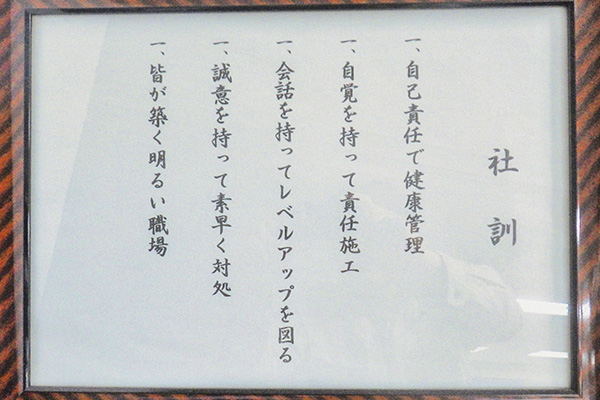 社訓
一、自己責任で健康管理
一、自覚を持って責任施工
一、会話を持ってレベルアップを図る
一、誠意を持って素早く対処
一、皆が築く明るい職場